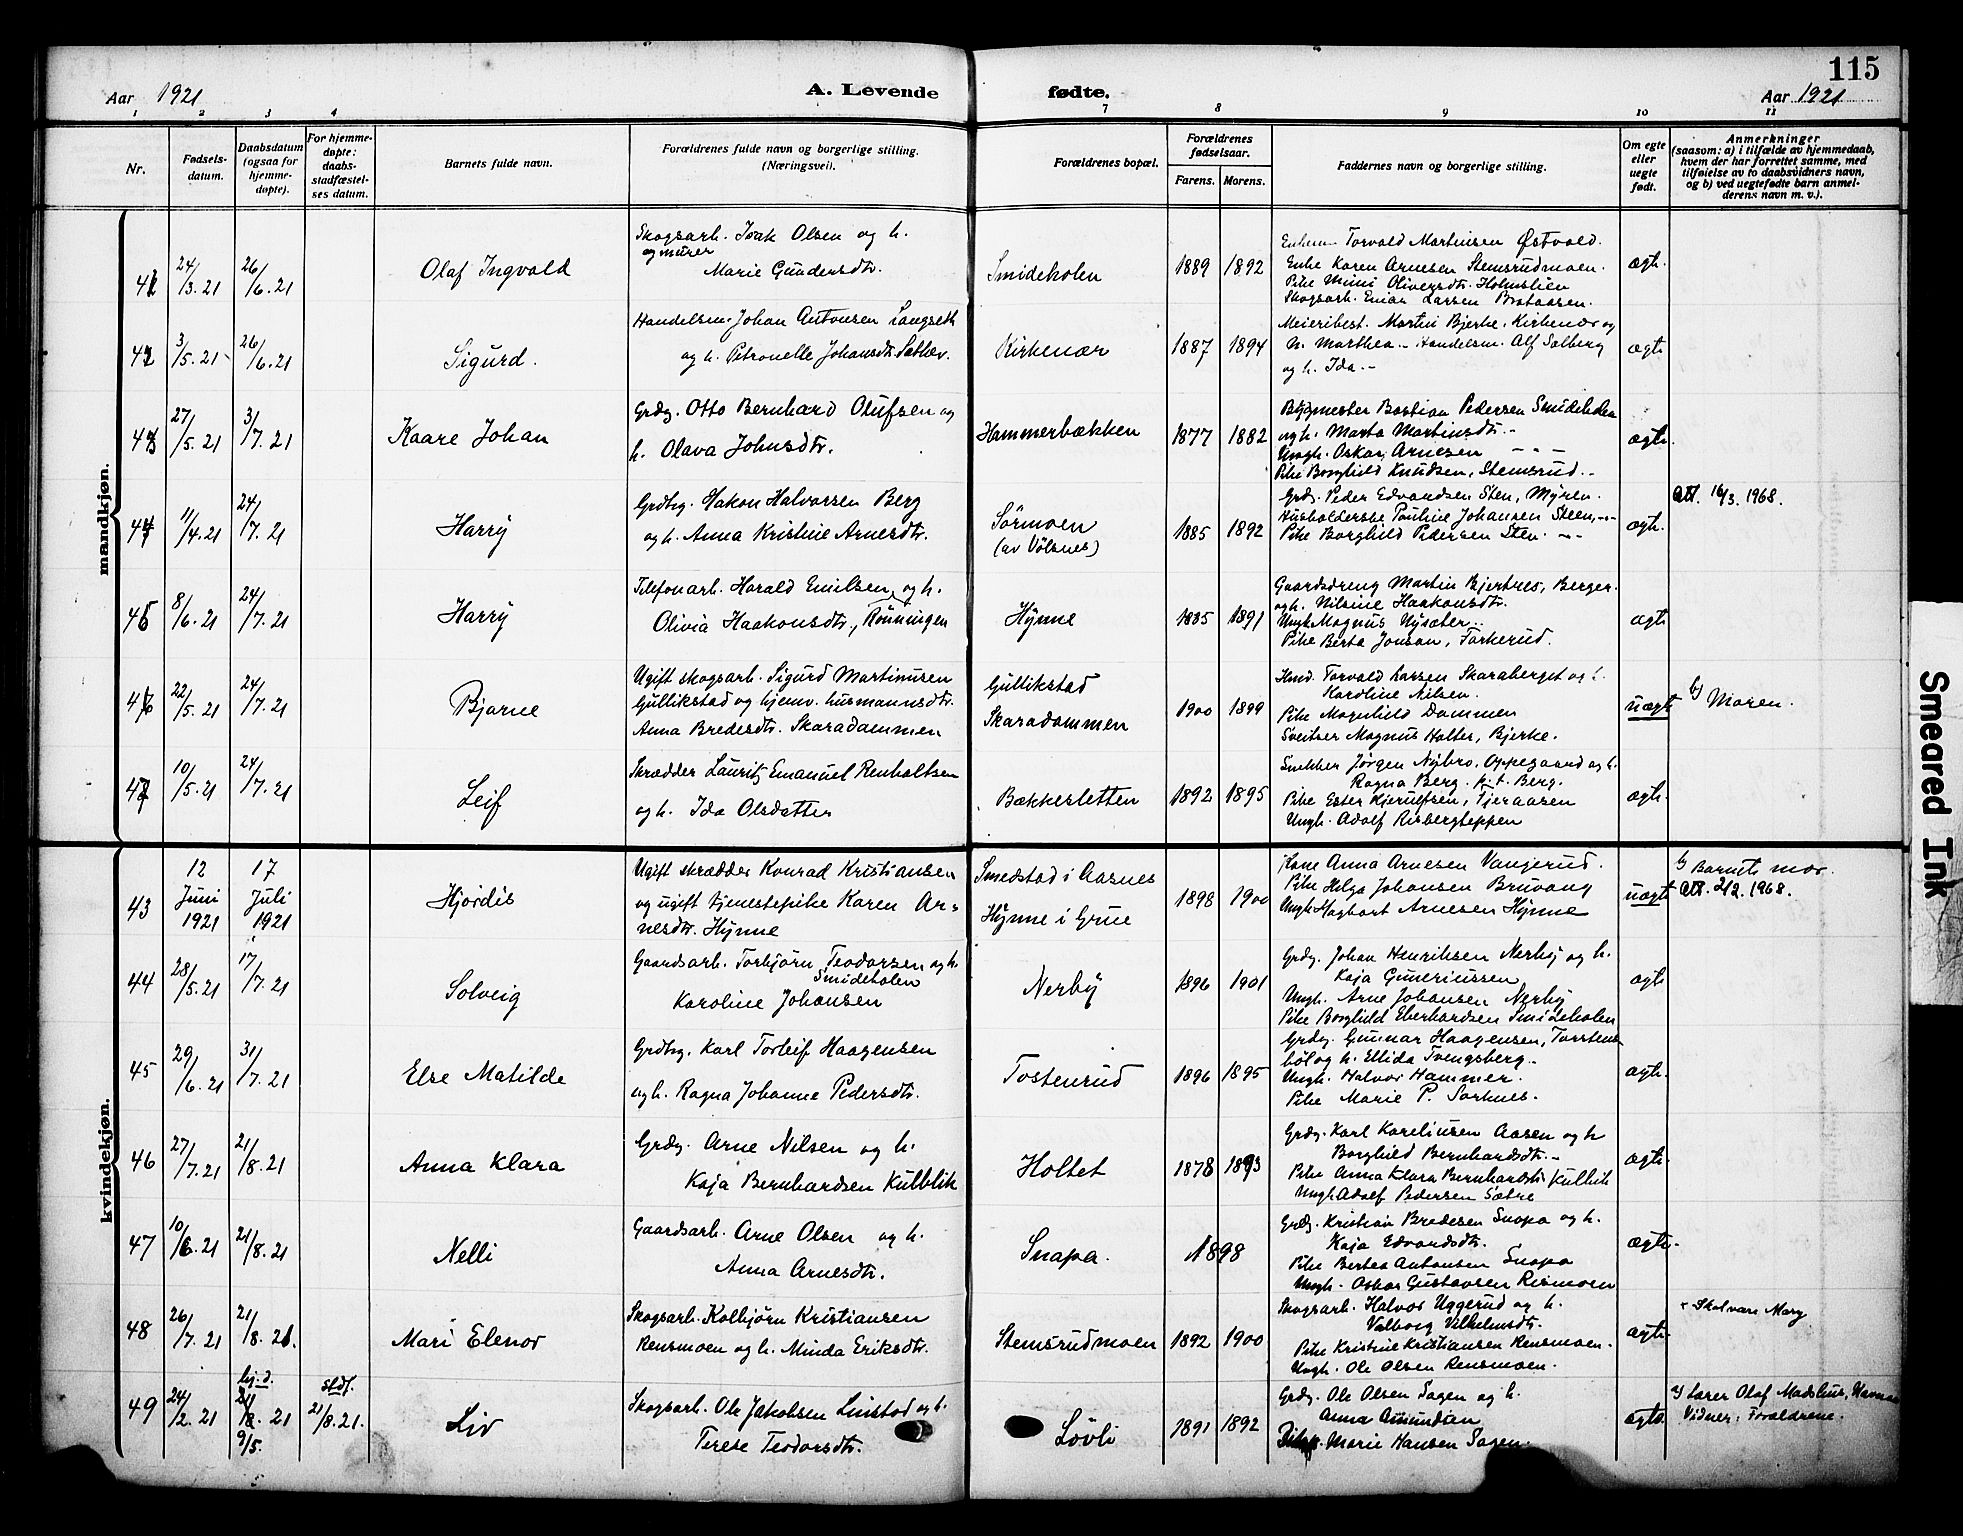 115
Aar 1921 A. Levende fødte. Aar 1921
1 2 3 4 7 8 9 10 11
Nr.
Fødsels-
datum.
Daabsdatum
(ogsaa for
hjemme-
døpte).
For hjemme-
døpte:
daabs-
stadfæstel-
ses datum.
Barnets fulde navn.
Forældrenes fulde navn og borgerlige stilling.
(Næringsvei).
Forældrenes bopæl.
Forældrenes
fødselsaar.
Farens. Morens.
Faddernes navn og borgerlige stilling.
Om egte
eller
uegte
født.
Anmerkninger
(saasom: a) i tilfælde av hjemmedaab,
hvem der har forrettet samme, med
tilføielse av to daabsvidners navn,
og b) ved uegtefødte barn anmel-
derens navn m. v.).
mandkjøn.
41 24/3.21 26/6.21 Olaf Ingvald
Skogsarb. Isak Olsen og h.
og murer
Marie Gundersdtr.
Smideholen 1889 1892
Torvald Martinsen Østvold.
Enke Karen Arnesen Stemsrudmoen.
Pike Mimi Oliversdtr. Holmslien
Skogsarb. Einar Larsen Brataasen.
ægte.
42 3/5.21 26/6.21 Sigurd.
Handelsm. Johan Antonsen Langseth
og h. Petronelle Johansdtr.
Kirkenær 1887 1894
Meieribest. Martin Bjerke, Kirkenær og
h. Marthea. Handelsm. Alf Solberg
og h. Ida.
ægte
43 27/5.21 3/7.21 Kaare Johan
Grdbr. Otto Bernhard Olufsen og
h. Olava Johnsdtr.
Hammerbækken 1877 1882
Bygmester Bastian Pedersen Smideholen
og h. Marta Martinsdtr.
Ungk. Oskar Arnesen
Pike Borghild Knudsen, Stemsrud.
ægte.
44 11/4.21 24/7.21 Harry
Grdbr. Hakon Halvorsen Berg
og h. Anna Kristine Arnesdtr.
Sörmoen
(av Völsnes)
1885 1892
Grdbr. Peder Edvardsen Sten, Myren.
Husholderske Pauline Johansen Steen,
Pike Borghild Pedersen Sten.
ægte.
Att. 16/3. 1968.
45 8/6.21 24/7.21 Harry
Telefonarb. Harald Emilsen og h.
Olivia Haakonsdtr., Rönningen
Hynne 1885 1891
Gaardsdreng Martin Bjertnes, Berger.
og h. Nilsine Haakonsdtr.
Ungk. Magnus Nysæter
Pike Berta Jonson, Torkerud.
ægte
46 22/5.21 24/7.21 Bjarne
Ugift skogsarb. Sigurd Martinusen
Gullikstad og hjemv. husmannsdtr.
Anna Bredesdtr. Skaradammen
Gullikstad
Skaradammen
1900 1899
Torvald Larsen Skaraberget og h.
Karoline Nilsen.
Pike Magnhild Dammen
Sveitser Magnus Holter, Bjerke.
uægte b) Moren.
47 10/5.21 24/7.21 Leif
Skrædder Lauritz Emanuel Renholtsen
og h. Ida Olsdatter
Bækkesletten 1892 1895
Snekker Jörgen Nybro, Oppegaard og h.
Ragna Berg. f. Berg.
Pike Ester Kjerulfsen, Tjeraasen
Ungk. Adolf Risbergteppen
ægte.
kvindekjøn.
43 12 Juni 1921 17 Juli 1921 Hjördis
Ugift skrædder Konrad Kristiansen
og ugift tjenestepike Karen Ar-
nesdtr. Hynne
Smedstad i Aasnes
Hynne i Grue
1898 1900
Kone Anna Arnesen Vangerud.
Pike Helga Johansen Bruvang
Ungk Hagbart Arnesen Hynne
uægte
b) Barnets mor.
Att. 2/2. 1968.
44 28/5.21 17/7.21 Solveig
Gaardsarb. Torbjörn Teodorsen og h.
Smideholen
Karoline Johansen
Nerby 1896 1901
Grdbr. Johan Henriksen Nerby og h.
Kaja Gunerinssen
Ungk. Arne Johansen Nerby
Pike Borghild Eberhardsen Smideholen
ægte
45 29/6.21 31/7.21 Else Matilde
Grdbr. Karl Torleif Haagensen
og h. Ragna Johanne Pedersdtr.
Tostenrud 1896 1895
Grdbr. Gunnar Haagensen, Torstens-
böl og h. Ellida Tvengsberg.
Ungk. Halvor Hammer.
Pike Marie P. Sorknes.
ægte.
46 27/7.21 21/8.21 Anna Klara
Grdbr. Arne Nilsen og h.
Kaja Bernhardsen Kulblik
Holtet 1878 1893
Grdbr. Karl Kareliusen Aasen og h
Borghild Bernhardsdtr.
Pike Anna Klara Bernhardsdtr Kulblik
Ungk Adolf Pedersen Sætre
ægte.
47 10/6.21 21/8.21 Nelli
Gaardsarb. Arne Olsen og h.
Anna Arnesdtr.
Snapa. 1898
Grdbr. Kristian Bredesen Snapa og h.
Kaja Edvardsdtr.
Pike Bertea Antonsen Snapa
Ungk. Oskar Gustavsen Rismoen
ægte.
48 26/7.21 21/8.21. Mari Elenor
Skogsarb. Kolbjörn Kristiansen
Rensmoen og h. Minda Eriksdtr.
Stemsrudmoen 1892 1900
Skogsarb. Halvor Uggerud og h.
Valborg Vilhelmsdtr.
Pike Kristine Kristiansen Rensmoen.
Ungk. Ole Olsen Rensmoen.
ægte.
Mary
49 24/2.21 hj.d. 9/5. stdf. 21/8.21. Liv
Skogsarb. Ole Jakobsen Linstad og h.
Terese Teodorsdtr.
Lövli 1891 1892
Grdbr. Ole Olsen Sagen og h.
Anna Amundsen
Marie Hansen Sagen.
ægte
a) Lærer Olaf Madshus,
Vidner: Forældrene.
Smeared Ink